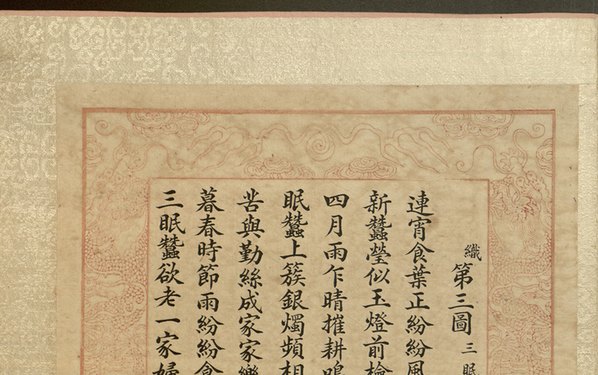 織第三圖三眠
連宵食葉正紛紛風
新蠶瑩似玉燈前檢
四月雨乍晴摧耕鳴
眠蠶上簇銀燭頻相
苦與勤絲成家家樂
暮春時節雨紛紛食
三眠蠶欲老一家婦